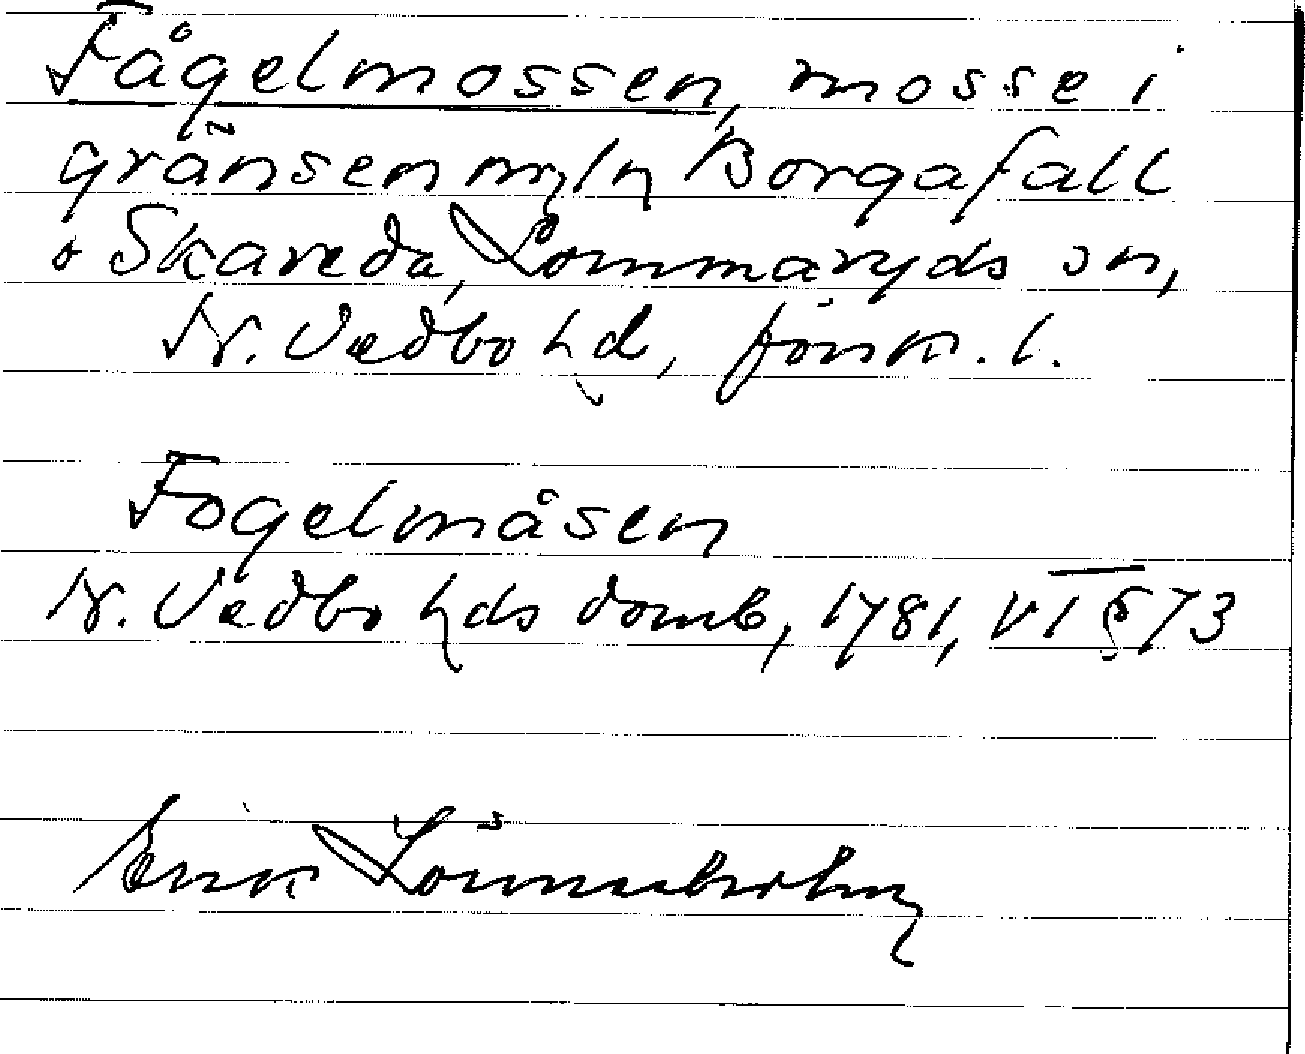 Fågelmossen, mosse i
gränsen mln Borgafall
o Skareda, Lommaryds sn,
N. Vedbo hd, Jönk. l.
Fogelmåsen
N. Vedbo hds domb, 1781, VI § 73
Erik Lönnerholm